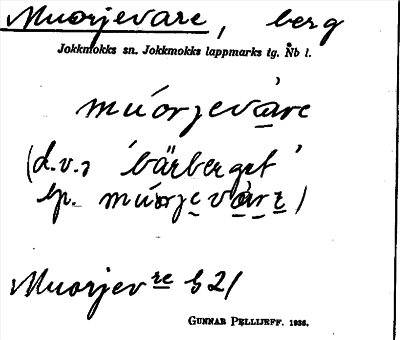 Muorjevare, berg
Jokkmokks sn. Jokkmokks lappmarks tg. Nb l.
múorjevàre
(d.v.s 'bärberget'
lp. múorjevàrɛ)
Muorjevre b 21
GUNNAR PELLIJEFF. 1936.